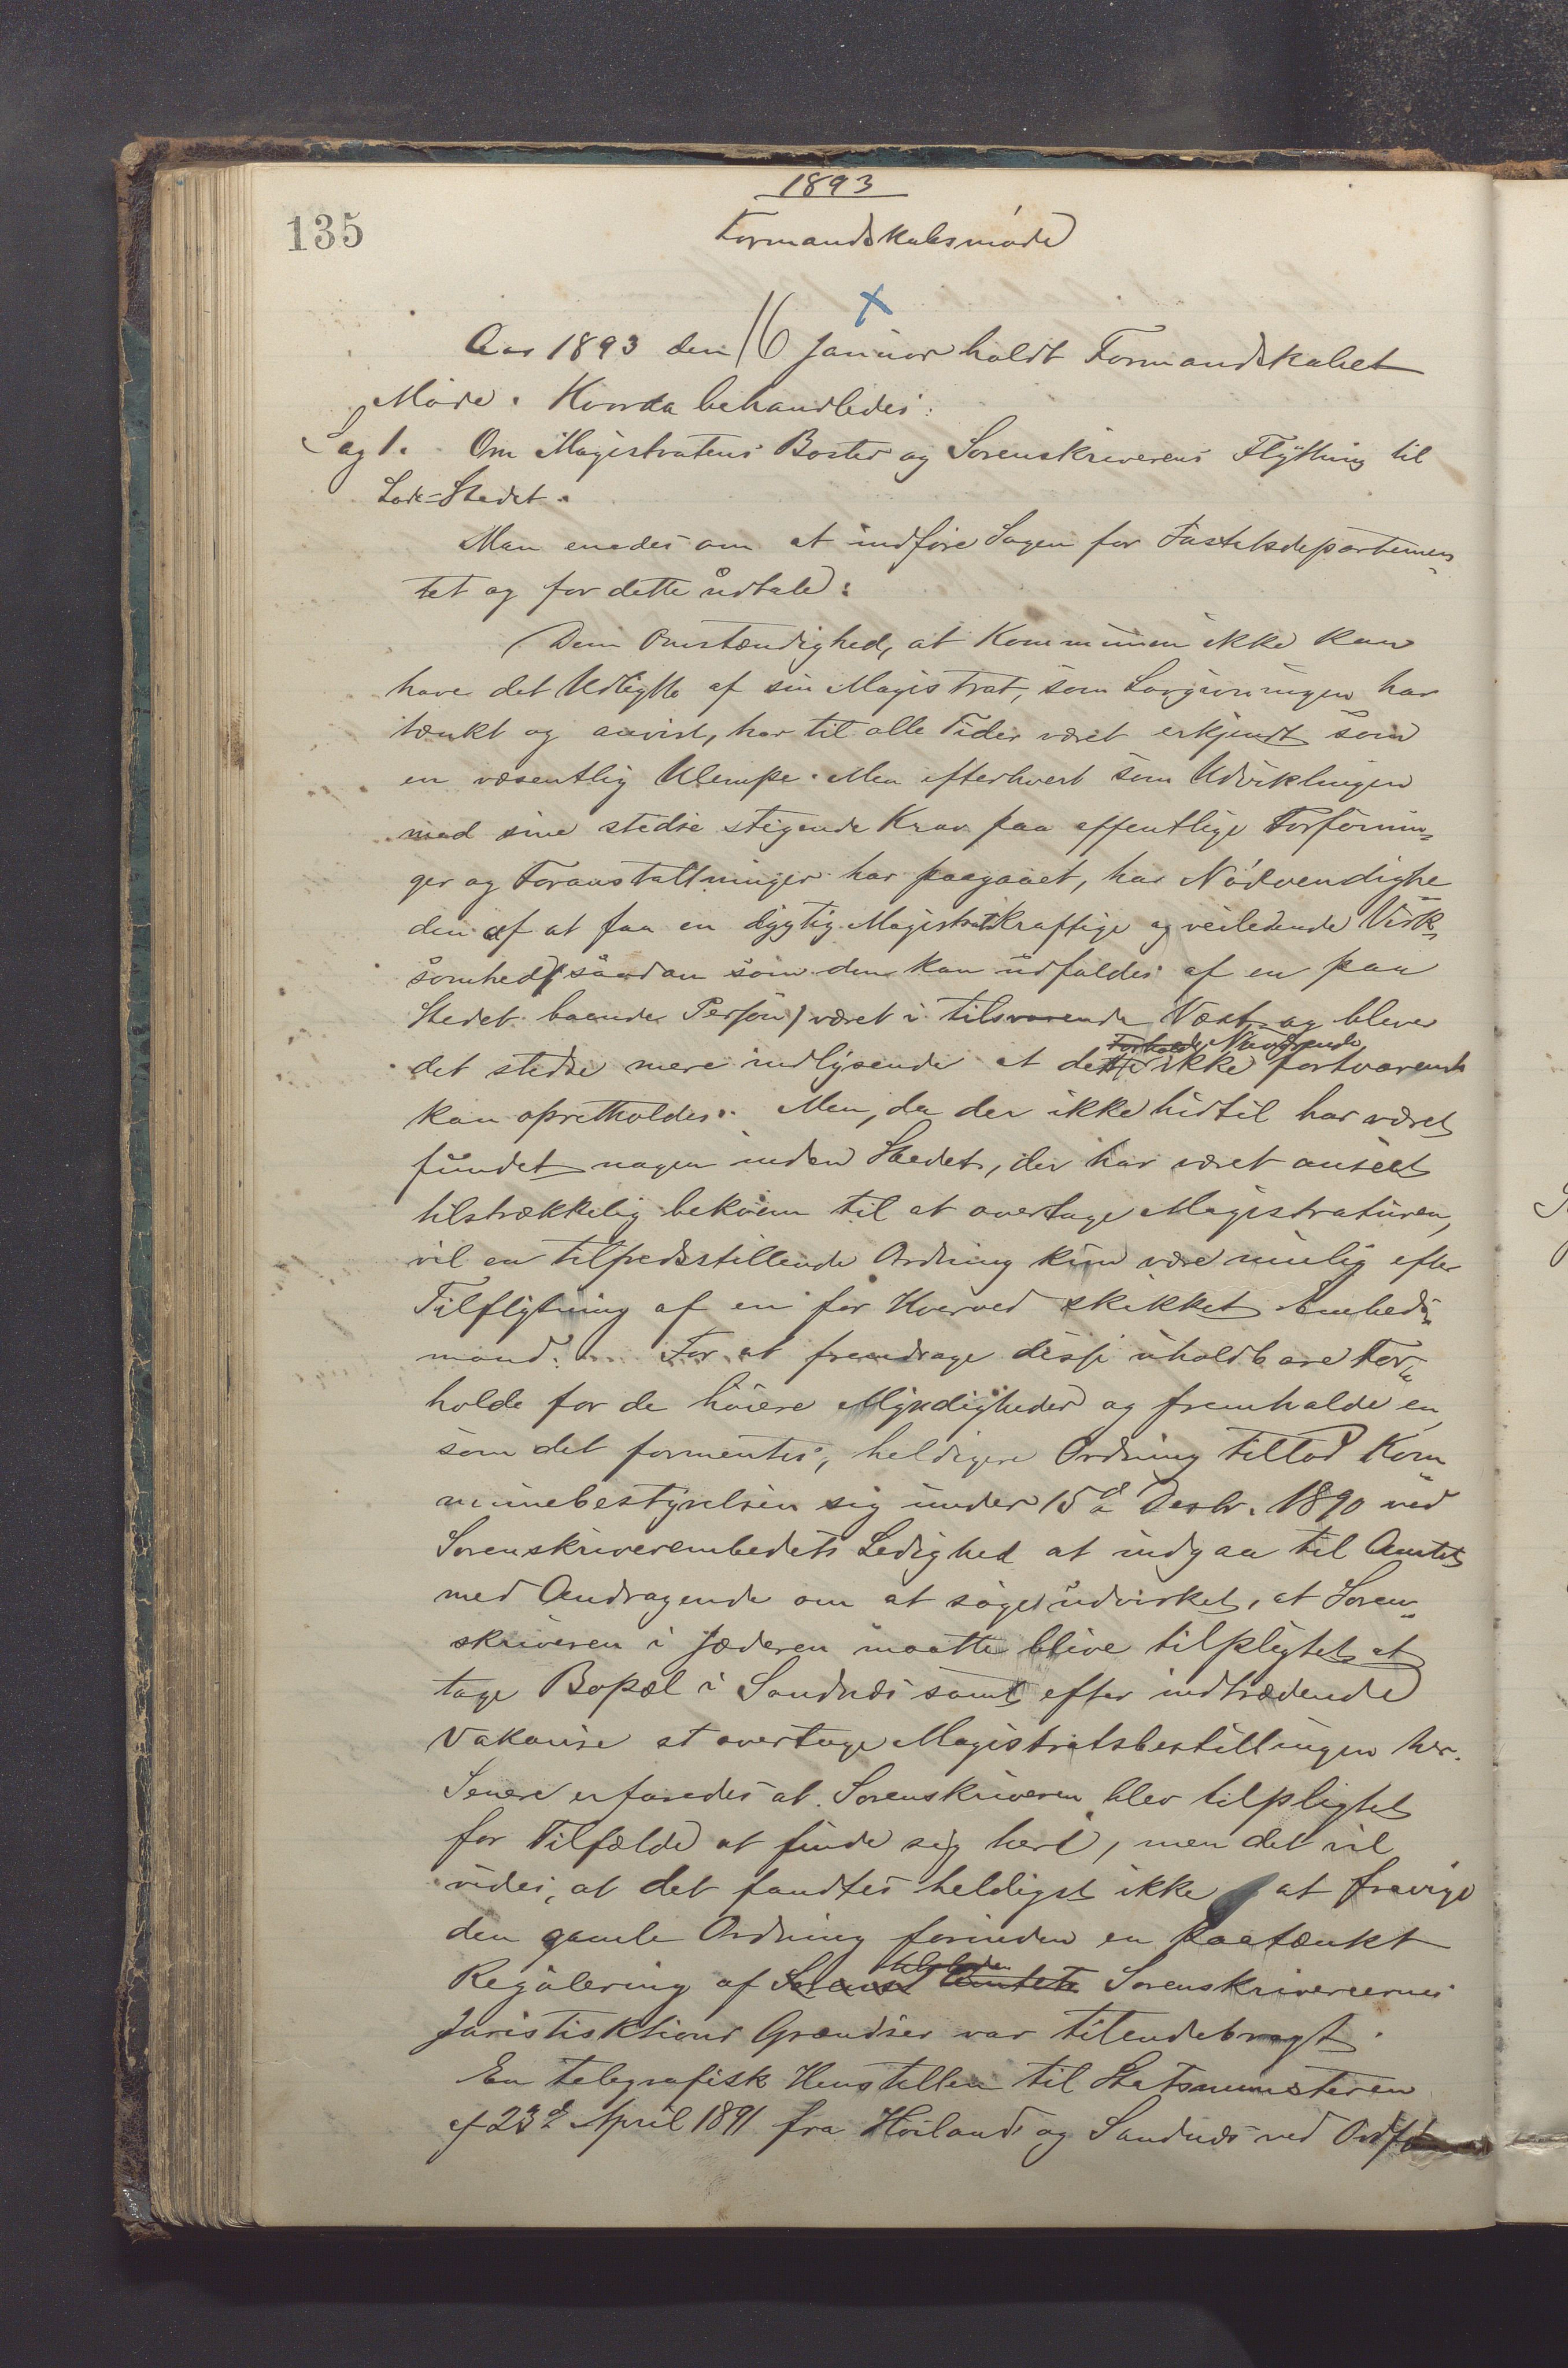 1893
135
Formandskabsmøde
x
Aar 1893 den 16 Januar holdt Formandskabet
Møde. Hvorda behandledes:
Sag 1. Om Magistratens Bosted og Sorenskriverens Flytning til
Lade-Stedet.
Man enedes om at indføre Sagen for Justitsdepartemen-
tet og for dette udtale:
Den Omstændighed, at Kommunen ikke kan
have det Udbytte af sin Magistrat, som Lovgivningen har
tænkt og anvist, har til alle Tider været erkjendt som
en væsentlig Ulempe. Men efterhvert som Udviklingen
med sine stedse stigende Krav paa offentlige Forførin-
ger og Foranstaltninger har paagaaet, har Nødvendighe-
den af at faa en dygtig Magistrats kraftige og veiledende Virk-
somhed (saadan som den kan udfoldes af en paa
Stedet boende Person) været i tilsvarende Vækst og blever
Forhold Nuværende
det stedse mere indlysende at dette ikke fortvarende
kan opretholdes. Men, da der ikke hidtil har været
fundet nogen inden Stedet, der har været anseet
tilstrækkelig bekvem til at overtage Magistraturen,
vil en tilfredsstillende Ordning kun være mulig efter
Tilflytning af en for Hvervet skikket Embeds-
mand. For at fremdrage disse uholdbare For-
holde for de høiere Myndigheder og fremholde en,
som det formentes, heldigere Ordning tillod Kom-
munebestyrelsen sig under 15de Decbr. 1890 ved
Sorenskriverembedets Ledighed at indgaa til Amtet
med Andragende om at søges udvirket, at Soren-
skriveren i Jæderen maatte blive tilpligtet at
tage Bopæl i Sandnæs samt efter indtrædende
Vakanse at overtage Magistratsbestillingen her.
Senere erfaredes at Sorenskriveren blev tilpligtet
for Tilfælde at finde sig heri, men det vil
vides, at det fandtes heldigst ikke at fravige
den gamle Ordning forinden en paatænkt
Regulering af Sorensk Amtets Sorenskriverernes
Juristisktions Grændser var tilendebragt.
En telegrafisk Henstillen til Statsministeren
af 23de April 1891 fra Høiland og Sandnæs ved Ordf